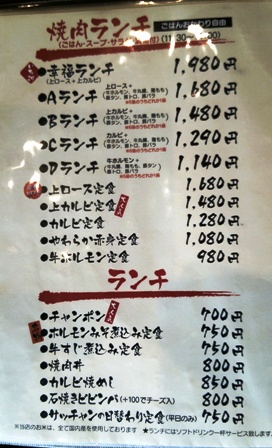 焼肉ランチ
ごはんおかわり自由
(ごはん・スープ・サラダ
●幸福ランチ 1,980円
(上ロース+上カルビ)
●Aランチ 上ロース+ 1,680円
●Bランチ 上カルビ+ 1,480円
●Cランチ カルビ+ 1,290円
●Dランチ 牛ホルモン+ 1,140円
●上ロース定食 1,680円
●上カルビ定食 1,480円
●カルビ定食 1,280円
●やわらか赤身定食 1,080円
●牛ホルモン定食 980円
ランチ
●チャンポン 700円
●ホルモンみそ煮込み定食 750円
●牛すじ煮込み定食 750円
●焼肉丼 800円
●カルビ焼めし 850円
●石焼きビビンバ(+100でチーズ入) 800円
●サッチャンの日替わり定食(平日のみ) 750円
※当店のお米は、全て国内産を使用しております ★ランチにはソフトドリンク一杯サービス致します